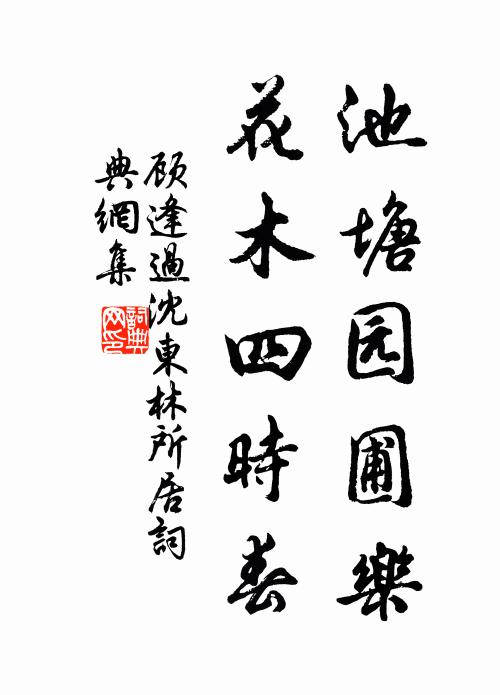 池塘园圃樂
花木四時春
顾逢過沈東林所居詞
典網集
詞典
网印